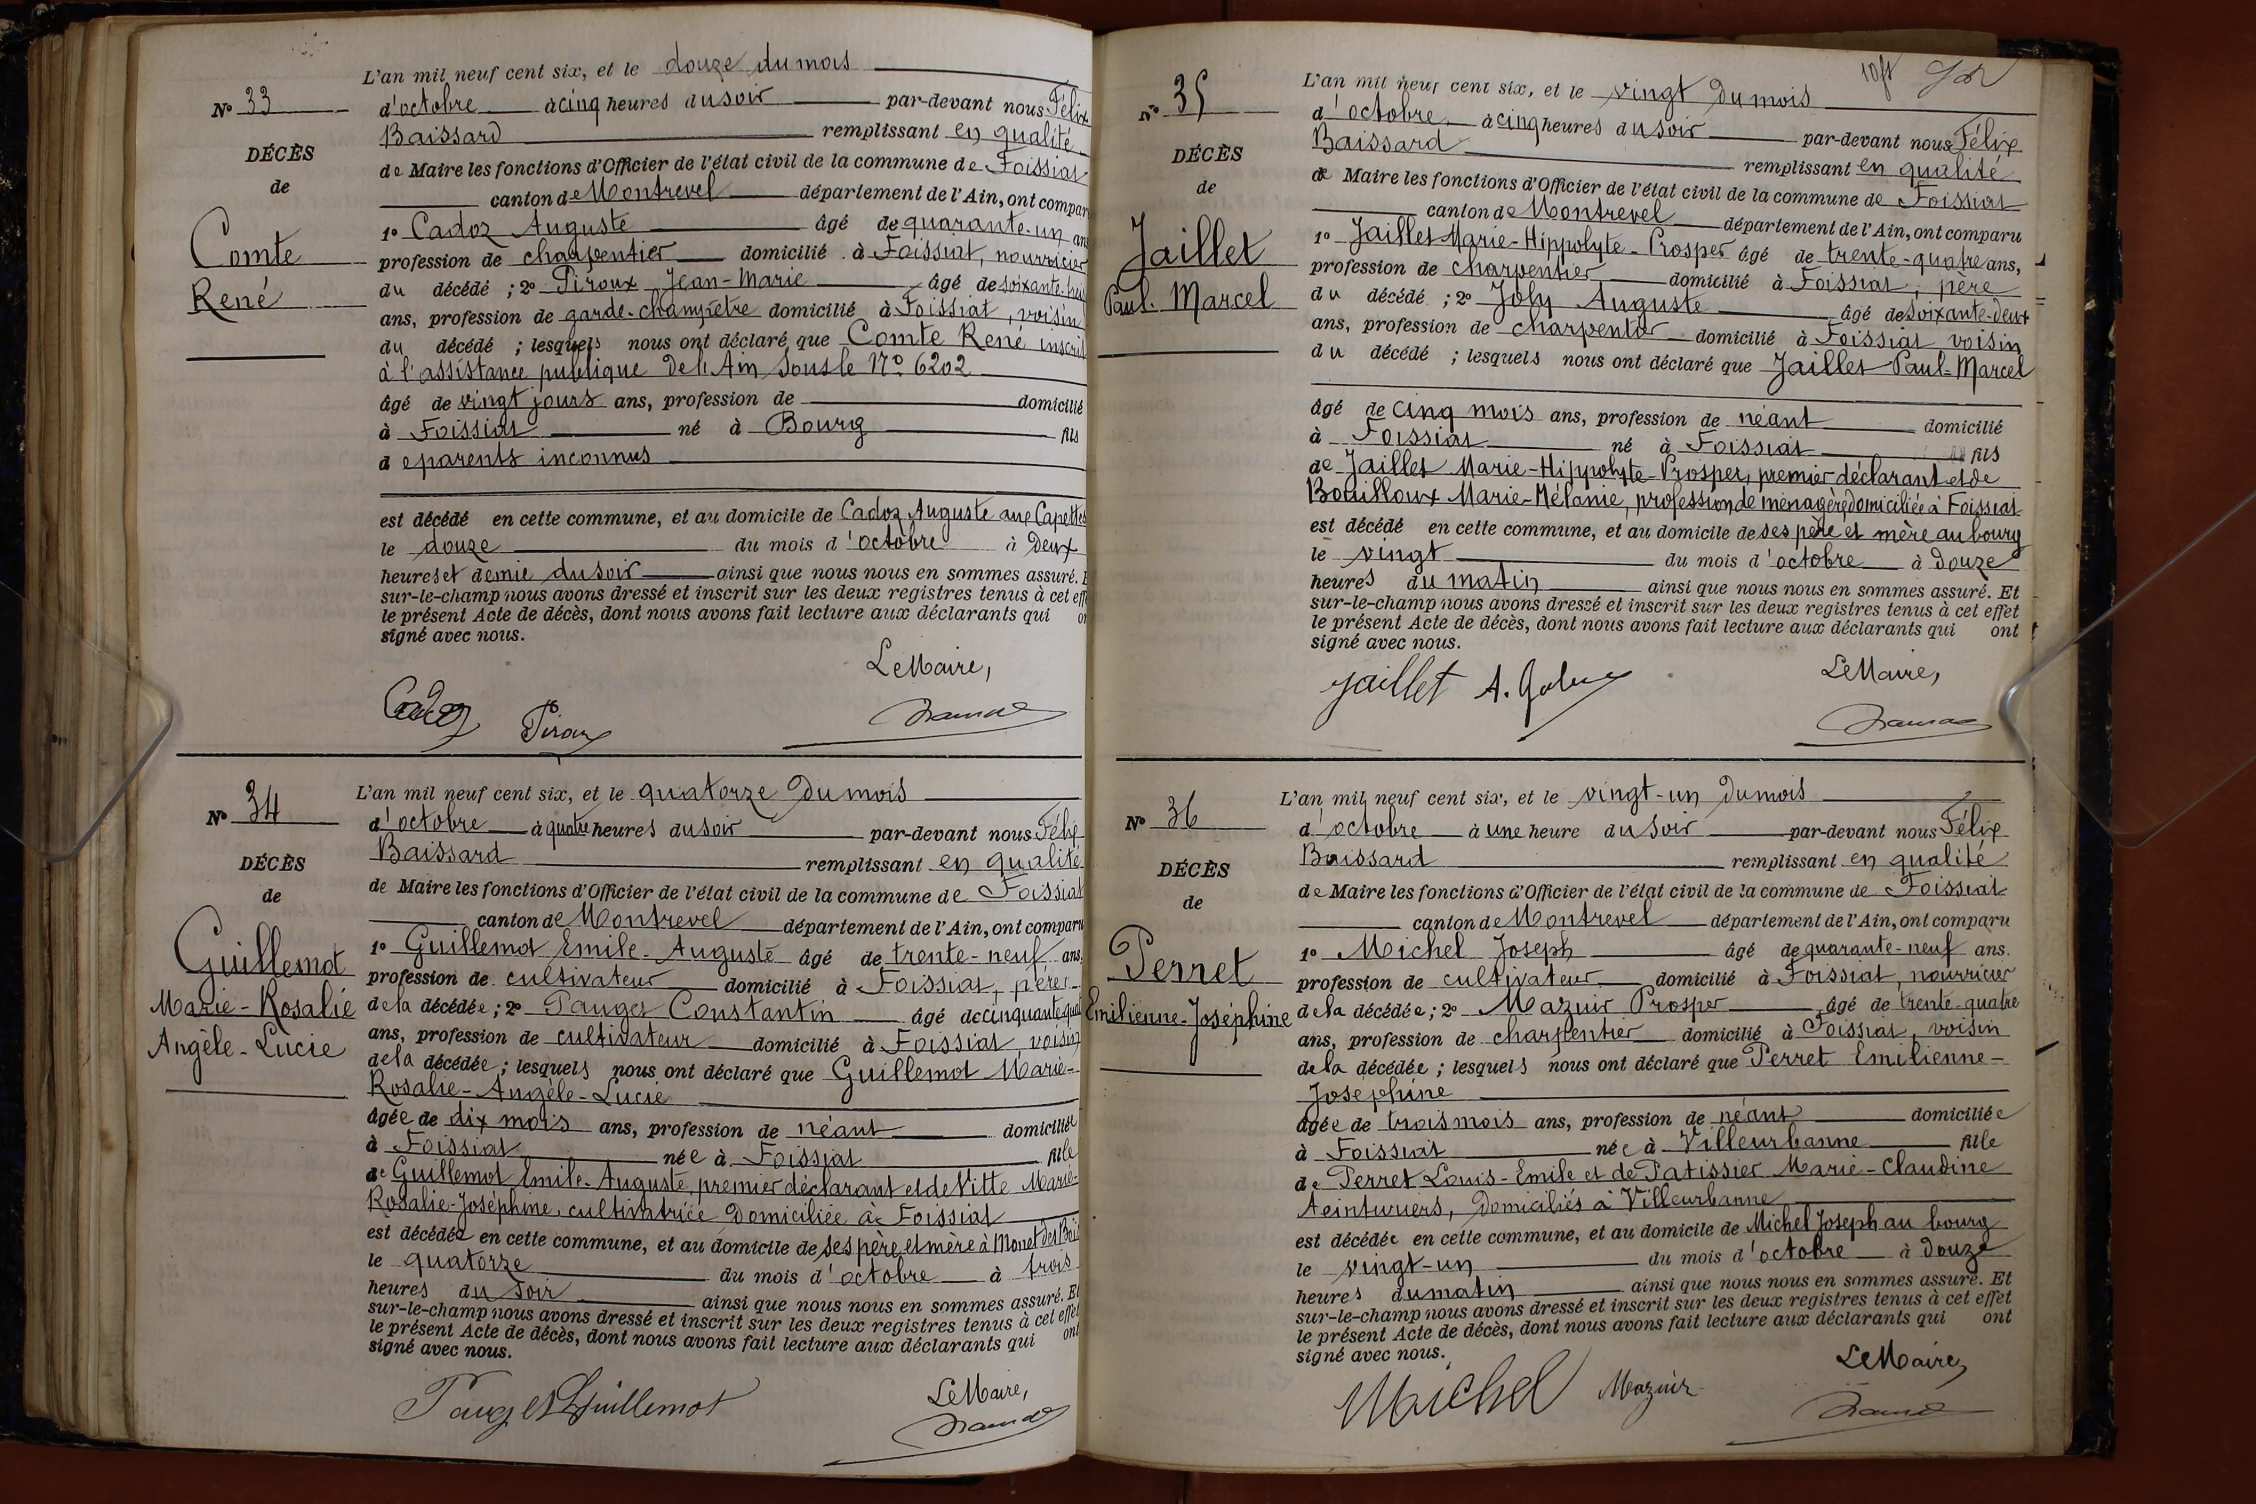 L'an mil neuf cent six, et le douze du mois
N° 33
d'octobre à cinq heures du soir par-devant nous Félix
Baissard remplissant en qualité
DÉCÈS
de Maire les fonctions d'Officier de l'état civil de la commune de Foissiat
de
canton de Montrevel département de l'Ain, ont compar
1° Cadoz Auguste âgé de quarante-un ans
Comte
profession de charpentier domicilié à Foissiat, nourricier
René
du décédé ; 2° Piroux Jean-Marie âgé de soixante-
ans, profession de garde-champêtre domicilié à Foissiat, voisin
du décédé ; lesquels nous ont déclaré que Comte René inscrit
à l'assistance publique de l'Ain sous le N° 6202
âgé de vingt jours ans, profession de domicilié
à Foissiat né à Bourg fils
de parents inconnus
est décédé en cette commune, et au domicile de Cadoz Auguste aux Capettes
le douze du mois d'octobre à deux
heures et demie du soir ainsi que nous nous en sommes assuré. E
sur-le-champ nous avons dressé et inscrit sur les deux registres tenus à cet eff
le présent Acte de décès, dont nous avons fait lecture aux déclarants qui on
signé avec nous.
Le Maire,
Cadoz Piroux
L'an mil neuf cent six, et le quatorze du mois
N° 34
d'octobre à quatre heures du soir par-devant nous Félix
Baissard remplissant en qualité
DÉCÈS
de Maire les fonctions d'Officier de l'état civil de la commune de Foissiat
de
canton de Montrevel département de l'Ain, ont comparu
1° Guillemot Emile-Auguste âgé de trente-neuf ans,
Guillemot
profession de cultivateur domicilié à Foissiat, père
Marie-Rosalie
de la décédée ; 2° Pauget Constantin âgé de cinquante
ans, profession de cultivateur domicilié à Foissiat, voisin
Angèle-Lucie
de la décédée ; lesquels nous ont déclaré que Guillemot Marie-
Rosalie-Angèle-Lucie
âgée de dix mois ans, profession de néant domiciliée
à Foissiat née à Foissiat fille
de Guillemot Emile-Auguste, premier déclarant et de Vitte Marie-
Rosalie-Joséphine, cultivatrice domiciliée à Foissiat
est décédée en cette commune, et au domicile de ses père et mère à Monet des Bois
le quatorze du mois d'octobre à trois
heures du soir ainsi que nous nous en sommes assuré. Et
sur-le-champ nous avons dressé et inscrit sur les deux registres tenus à cet effet
le présent Acte de décès, dont nous avons fait lecture aux déclarants qui ont
signé avec nous.
Le Maire,
Pauget Guillemot
L'an mil neuf cent six, et le vingt du mois
N° 35
d'octobre à cinq heures du soir par-devant nous Félix
Baissard remplissant en qualité
DÉCÈS
de Maire les fonctions d'Officier de l'état civil de la commune de Foissiat
de
canton de Montrevel département de l'Ain, ont comparu
1° Jaillet Marie-Hippolyte-Prosper âgé de trente-quatre ans,
Jaillet
profession de charpentier domicilié à Foissiat, père
Paul-Marcel
du décédé ; 2° Joly Auguste âgé de soixante-deux
ans, profession de charpentier domicilié à Foissiat voisin
du décédé ; lesquels nous ont déclaré que Jaillet Paul-Marcel
âgé de cinq mois ans, profession de néant domicilié
à Foissiat né à Foissiat fils
de Jaillet Marie-Hippolyte-Prosper, premier déclarant et de
Bouilloux Marie-Mélanie, profession de ménagère domiciliée à Foissiat
est décédé en cette commune, et au domicile de ses père et mère au bourg
le vingt du mois d'octobre à douze
heures du matin ainsi que nous nous en sommes assuré. Et
sur-le-champ nous avons dressé et inscrit sur les deux registres tenus à cet effet
le présent Acte de décès, dont nous avons fait lecture aux déclarants qui ont
signé avec nous.
Le Maire,
Jaillet A.
L'an mil neuf cent six, et le vingt-un du mois
N° 36
d'octobre à une heure du soir par-devant nous Félix
Baissard remplissant en qualité
DÉCÈS
de Maire les fonctions d'Officier de l'état civil de la commune de Foissiat
de
canton de Montrevel département de l'Ain, ont comparu
1° Michel Joseph âgé de quarante-neuf ans.
Perret
profession de cultivateur domicilié à Foissiat, nourricier
Emilienne-Joséphine
de la décédée ; 2° Mazuir Prosper âgé de trente-quatre
ans, profession de charpentier domicilié à Foissiat, voisin
de la décédée ; lesquels nous ont déclaré que Perret Emilienne-
Joséphine
âgée de trois mois ans, profession de néant domiciliée
à Foissiat née à Villeurbanne fille
de Perret Louis-Emile et de Patissier Marie-Claudine
teinturiers, domiciliés à Villeurbanne
est décédée en cette commune, et au domicile de Michel Joseph au bourg
le vingt-un du mois d'octobre à douze
heures du matin ainsi que nous nous en sommes assuré. Et
sur-le-champ nous avons dressé et inscrit sur les deux registres tenus à cet effet
le présent Acte de décès, dont nous avons fait lecture aux déclarants qui ont
signé avec nous.
Le Maire,
Michel Mazuir